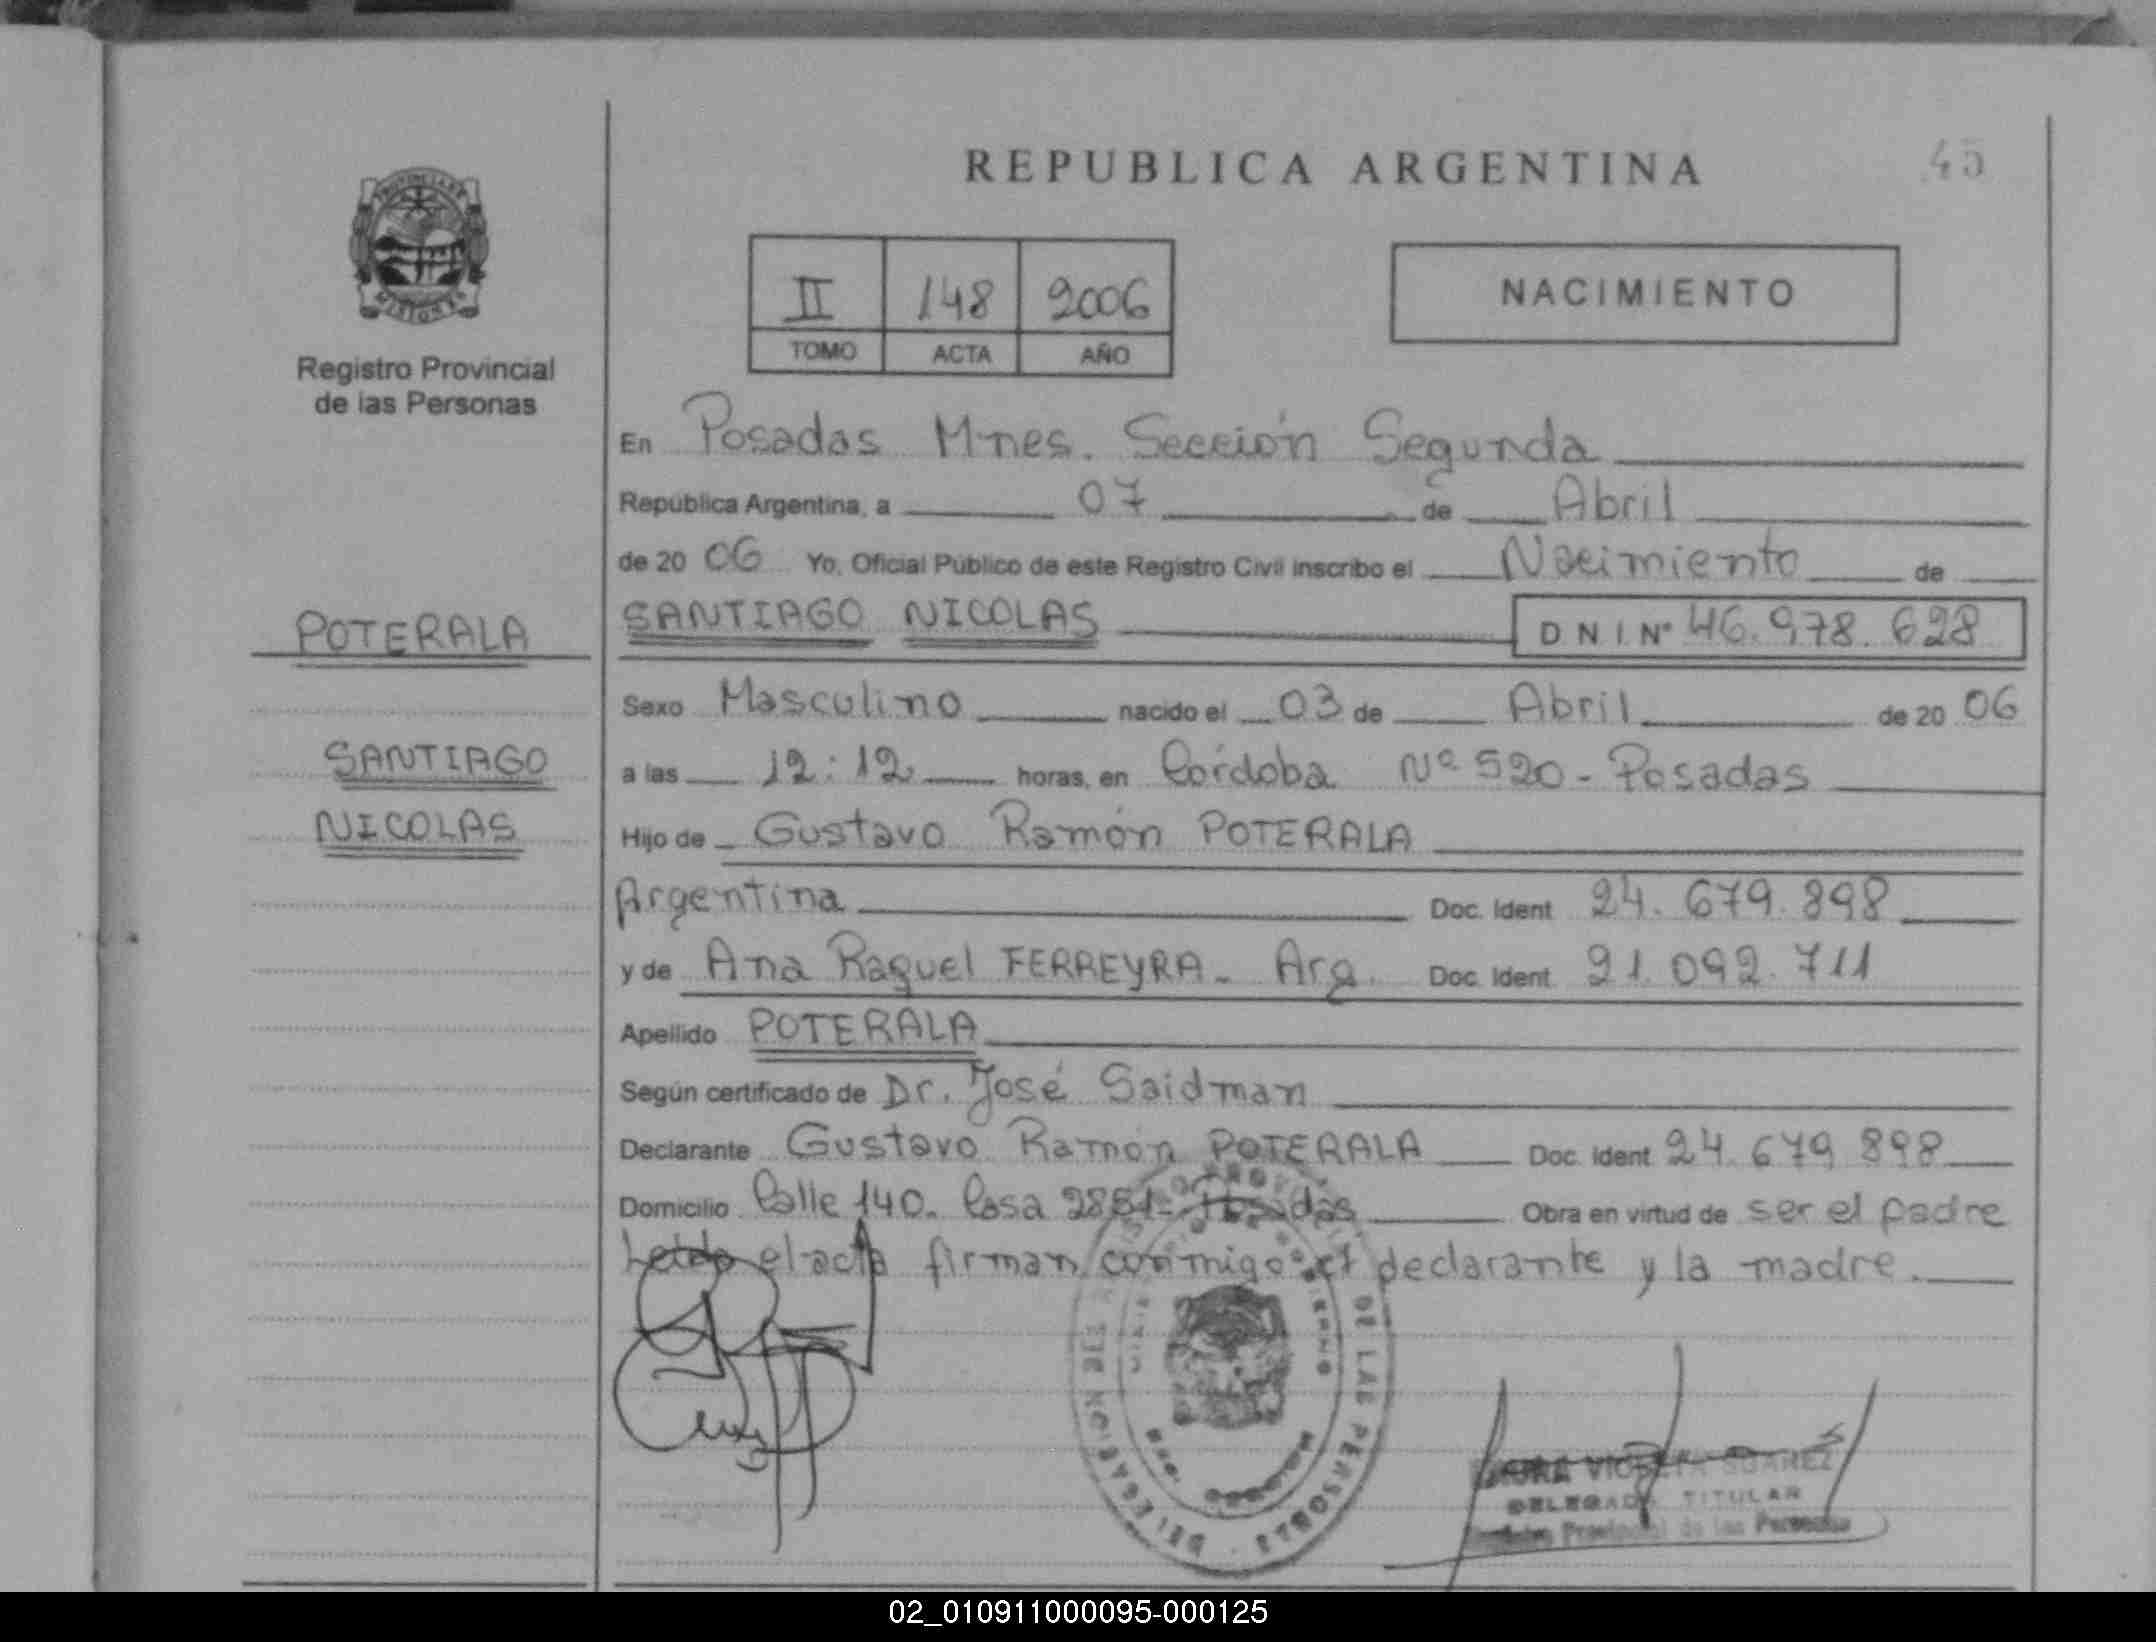 REPUBLICA ARGENTINA
45
PROVINCIA DE
MISIONES
Registro Provincial
de las Personas
II 148 2006
TOMO ACTA AÑO
NACIMIENTO
En Posadas Mnes. Sección Segunda
República Argentina, a 07 de Abril
de 20 06 Yo, Oficial Público de este Registro Civil inscribo el Nacimiento de
POTERALA
SANTIAGO NICOLAS
D N I Nº 46.978.628
Sexo Masculino nacido el 03 de Abril de 20 06
SANTIAGO
a las 12:12 horas, en Córdoba Nº 520 - Posadas
NICOLAS
Hijo de Gustavo Ramón POTERALA
Argentina Doc. Ident 24.679.898
y de Ana Raquel FERREYRA - Arg. Doc. Ident. 21.092.711
Apellido POTERALA
Según certificado de Dr. José Saidman
Declarante Gustavo Ramón POTERALA Doc. Ident 24.679 898
Domicilio Calle 140. Casa 2851- Posadas Obra en virtud de ser el padre
Leída el acta firman conmigo el declarante y la madre.
DE LAS PERSONAS
DELEGADA TITULAR
Registro Provincial de las Personas
02_010911000095-000125